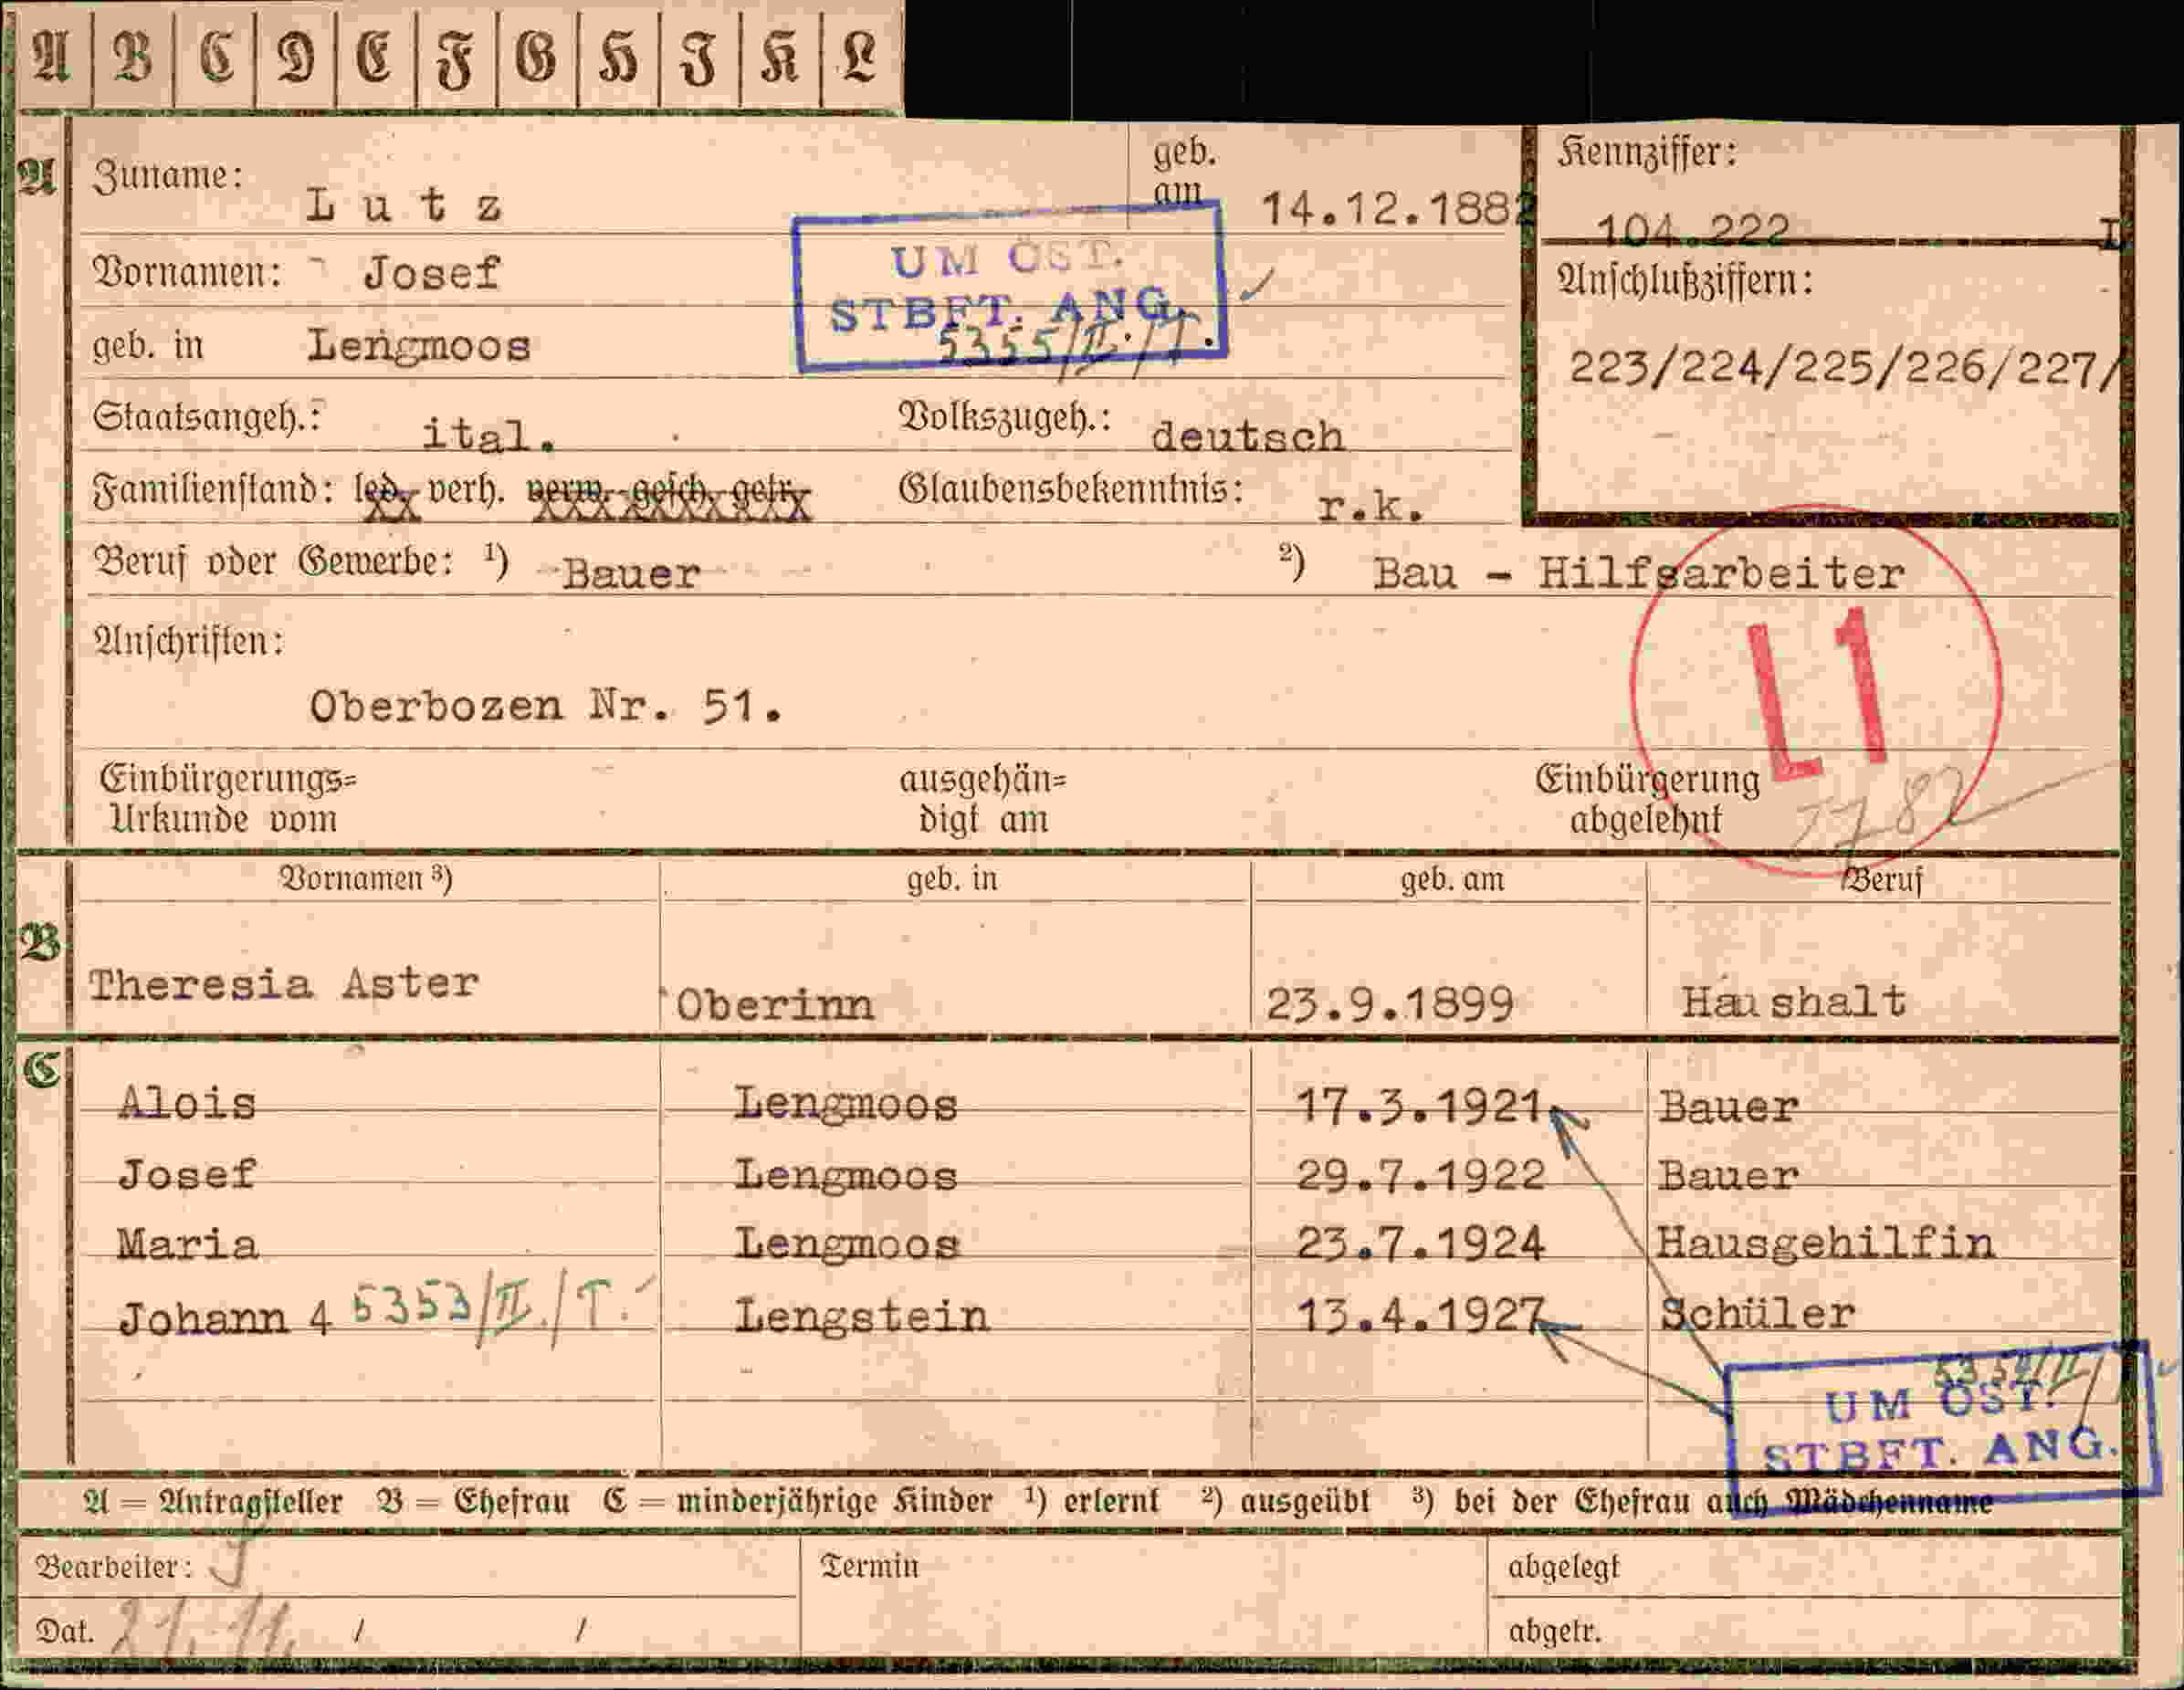 A B C D E F G H I K L
A Zuname: Lutz geb. am 14.12.1882
Kennziffer: 104.222 I
UM ÖST. STBFT. ANG. 5355/II./T.
Vornamen: Josef
Anschlußziffern:
geb. in Lengmoos
223/224/225/226/227/
Staatsangeh.: ital. Volkszugeh.: deutsch
Familienstand: led. verh. verw. gesch. getr. Glaubensbekenntnis: r.k.
Beruf oder Gewerbe: 1) Bauer 2) Bau - Hilfsarbeiter
Anschriften:
L1
Oberbozen Nr. 51.
Einbürgerungs= Urkunde vom ausgehän= digt am Einbürgerung abgelehnt
2782
Vornamen 3) geb. in geb. am Beruf
B Theresia Aster Oberinn 23.9.1899 Haushalt
C Alois Lengmoos 17.3.1921 Bauer
Josef Lengmoos 29.7.1922 Bauer
Maria Lengmoos 23.7.1924 Hausgehilfin
Johann 4 5353/II./T. Lengstein 13.4.1927 Schüler
UM ÖST.
STBFT. ANG.
A = Antragsteller B = Ehefrau C = minderjährige Kinder 1) erlernt 2) ausgeübt 3) bei der Ehefrau auch Mädchenname
Bearbeiter: Termin abgelegt
Dat. 21. 11. / / abgetr.